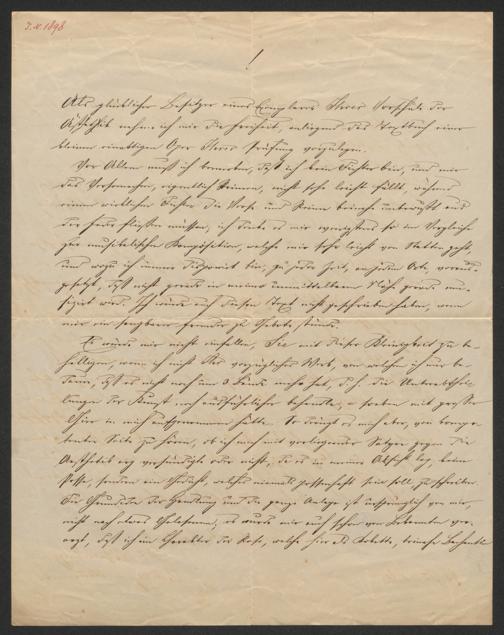 J. N. 1898
!
Als glücklicher Besitzer eines Exemplares Ihrer Vorschule der
Ästhetik nehme ich mir die Freiheit, anliegend das Textbuch einer
kleinen einaktigen Oper Ihrer Prüfung vorzulegen.
Vor Allem muß ich bemerken, daß ich kein Dichter bin, und mir
das Versemachen, eigentlich Reimen, nicht sehr leicht fällt, während
einem wirklichen Dichter die Verse und Reime beinahe unbewußt aus
der Feder fließen müssen, ich denke es mir wenigstens so im Vergleiche
zur musikalischen Komposition, welche mir sehr leicht von Statten geht,
und wozu ich immer disponirt bin, zu jeder Zeit, an jedem Orte, voraus-
gesetzt, daß nicht gerade in meiner unmittelbaren Nähe gerade mu-
sizirt wird. Ich würde auch diesen Text nicht geschrieben haben, wenn
mir ein sangbarer fremder zu Gebote stünde.
Es würde mir nicht einfallen, Sie mit dieser Kleinigkeit zu be-
helligen, wenn ich nicht Ihr vorzügliches Werk, von welchem ich nur be-
daure, daß es nicht noch um 3 Bände mehr hat, d. h. die Unterabthei-
lungen der Kunst noch ausführlicher behandle, – soeben mit großer
Gier in mich aufgenommen hätte. So drängt es mich aber, von kompe-
tenter Seite zu hören, ob ich mich mit vorliegender Satyre gegen die
Aesthetik arg versündigte oder nicht, da es in meiner Absicht lag, keine
Posse, sondern ein Lustspiel, welches niemals possenhaft sein soll, zu schreiben.
Die Grundidee der Handlung und die ganze Anlage ist ursprünglich von mir,
nicht nach etwas Gelesenem, es wurde mir auch schon von Bekannten ge-
sagt, daß ich im Charakter der Rosa, welche hier als kokette, beinahe